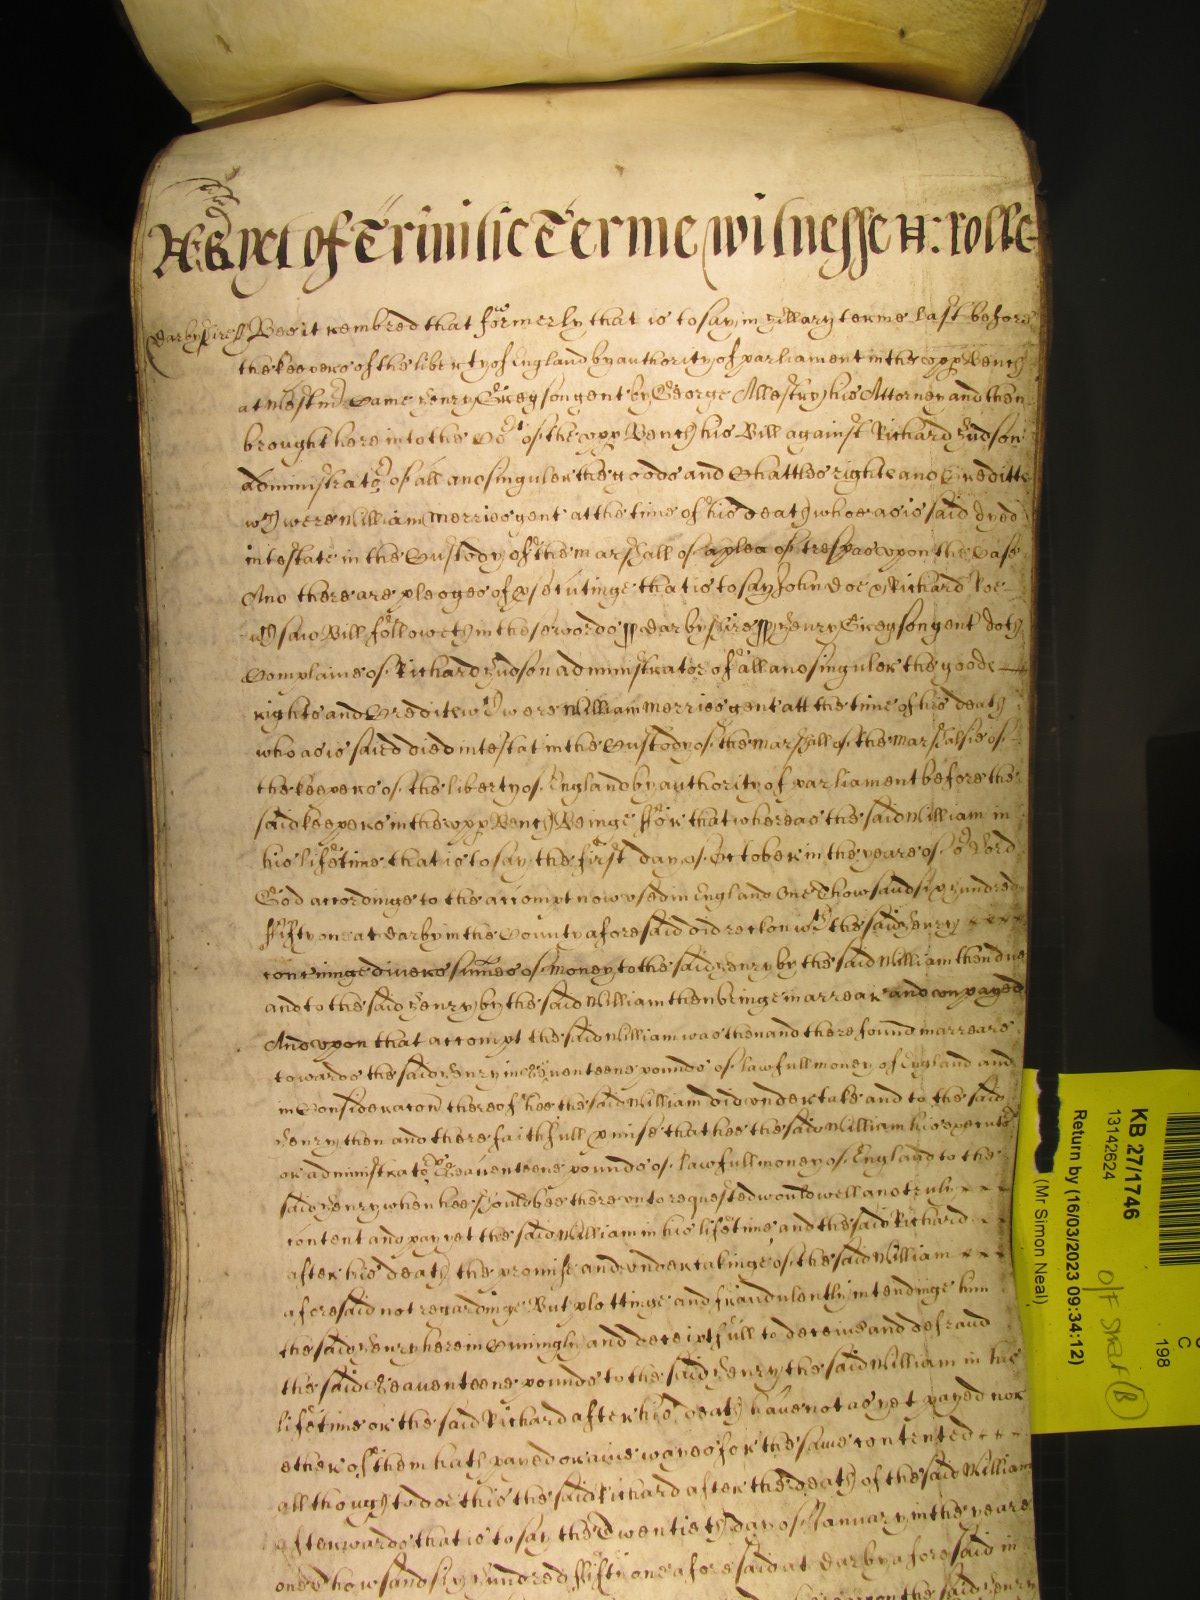 As yet of Trinitie Terme witnesse H: Rolle
Darbyshire ss Bee it remembred that formerly that is to say in Hillary terme last before
the keepers of the liberty of England by authority of parliament in the upp Bench
at Westmr Came Henry Gregson gent by George Allestry his Attorney and then
brought here into the Cort of the upp Bench his Bill against Richard Hudson
administrator of all and singuler the goods and Chattles rights and Creditte
wch were William Merries gent at the time of his death whoe as is said dyed
intestate in the Custody of the marshall of a plea of trespas upon the Case
And there are pledges of psecutinge that is to say John Doe & Richard Roe
wch said Bill followeth in these words ss Darbyshire ss Henry Gregson gent doth
Complaine of Richard Hudson administrator of all and singuler the goods
rights and Credits wch were William Merries gent att the time of his death
who as is saied died intestat in the Custody of the marshall of the marshalsie of
the keepers of the liberty of England by authority of parliament before the
said keepers in the upp Bench Beinge ffor that whereas the said William in
his lifetime that is to say the first day of October in the yeare of or Lord
God accordinge to the accompt now used in England One Thowsand six Hundred
ffifty one at Darby in the County aforesaid did reckon wth the said Henry
conc̃ninge divers sum̃es of money to the said Henry by the said William then due
and to the said Henry by the said William then beinge in arrear and unpayed
And upon that accompt the said William was then and there found in arreare
towards the said Henry in Seaventeene pounds of lawfull money of England and
in Consideracon thereof hee the said William did undertake and to the said
Henry then and there faithfull pmise that hee the said William his executors
or administrators Seaventeene pounds of lawfull money of England to the
said Henry when hee should bee thereunto requested would well and truly
content and pay yet the said William in his lifetime and the said Richard
after his death the promise and undertakinge of the said William
aforesaid not regardinge But plottinge and fraudulently intendinge him
the said Henry herein Cuningly and deceiptfull to deceive and defraud
the said Seaventeene pounds to the said Henry the said William in his
lifetime or the said Richard after his death have not as yet payed nor
ether of them hath payed or anie wayes for the same contented
although to doe this the said Richard after the death of the said William
afterwards that is to say the Twentieth day of January in the yeare
one Thowsand six Hundred ffifty one aforesaid at Darby aforesaid in
the said Henry
KB 27/1746
13142624
Return by (16/03/2023 09:34:12)
(Mr Simon Neal)
C
198